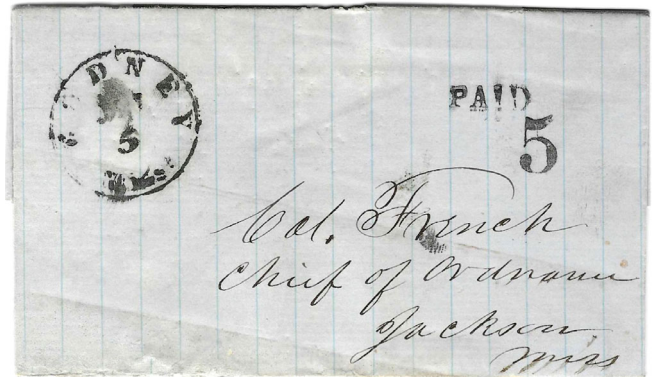 RODNEY
5
Miss.
PAID
5
Col. French
Chief of Ordnance
Jackson
Miss